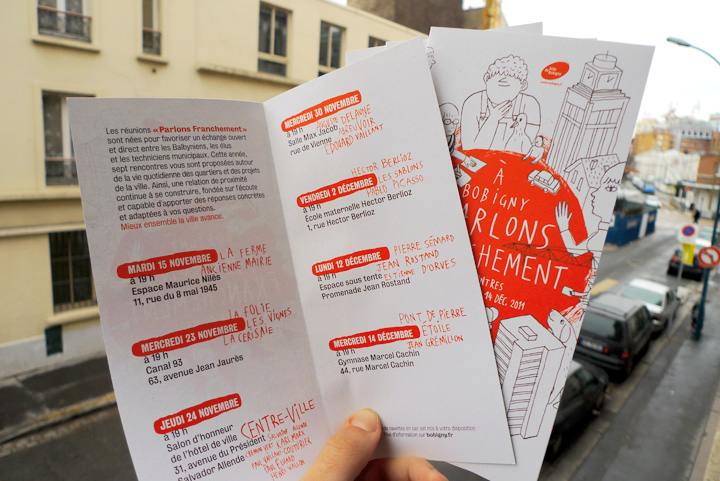 Les réunions «Parlons Franchement»
sont nées pour favoriser un échange ouvert
et direct entre les Balbyniens, les élus
et les techniciens municipaux. Cette année,
sept rencontres vous sont proposées autour
de la vie quotidienne des quartiers et des projets
de la ville. Ainsi, une relation de proximité
continue à se construire, fondée sur l'écoute
et capable d'apporter des réponses concrètes
et adaptées à vos questions.
Mieux ensemble la ville avance.
MARDI 15 NOVEMBRE
LA FERME
ANCIENNE MAIRIE
à 19 h
Espace Maurice Nilès
11, rue du 8 mai 1945
MERCREDI 23 NOVEMBRE
LA FOLIE
LES VIGNES
LA CERISAIE
à 19 h
Canal 93
63, avenue Jean Jaurès
JEUDI 24 NOVEMBRE
CENTRE-VILLE
à 19 h
Salon d'honneur
de l'hôtel de ville
31, avenue du Président
Salvador Allende
SALVADOR ALLENDE
CHEMIN VERT KARL MARX
PAUL VAILLANT-COUTURIER
PAUL ELUARD
HENRI WALLON
MERCREDI 30 NOVEMBRE
à 19 h
Salle Max Jacob
rue de Vienne
DELAUNE
EDOUARD VAILLANT
VENDREDI 2 DÉCEMBRE
HECTOR BERLIOZ
LES SABLONS
PABLO PICASSO
à 19 h
École maternelle Hector Berlioz
1, rue Hector Berlioz
LUNDI 12 DÉCEMBRE
PIERRE SÉMARD
JEAN ROSTAND
ESTIENNE D'ORVES
à 19 h
Espace sous tente
Promenade Jean Rostand
MERCREDI 14 DÉCEMBRE
PONT DE PIERRE
ÉTOILE
JEAN GRÉMILLON
à 19 h
Gymnase Marcel Cachin
44, rue Marcel Cachin
navettes en car est mis à votre disposition
d'information sur bobigny.fr
A
BOBIGNY
PARLONS
CHEMENT
NTRES
14 DÉC. 2011